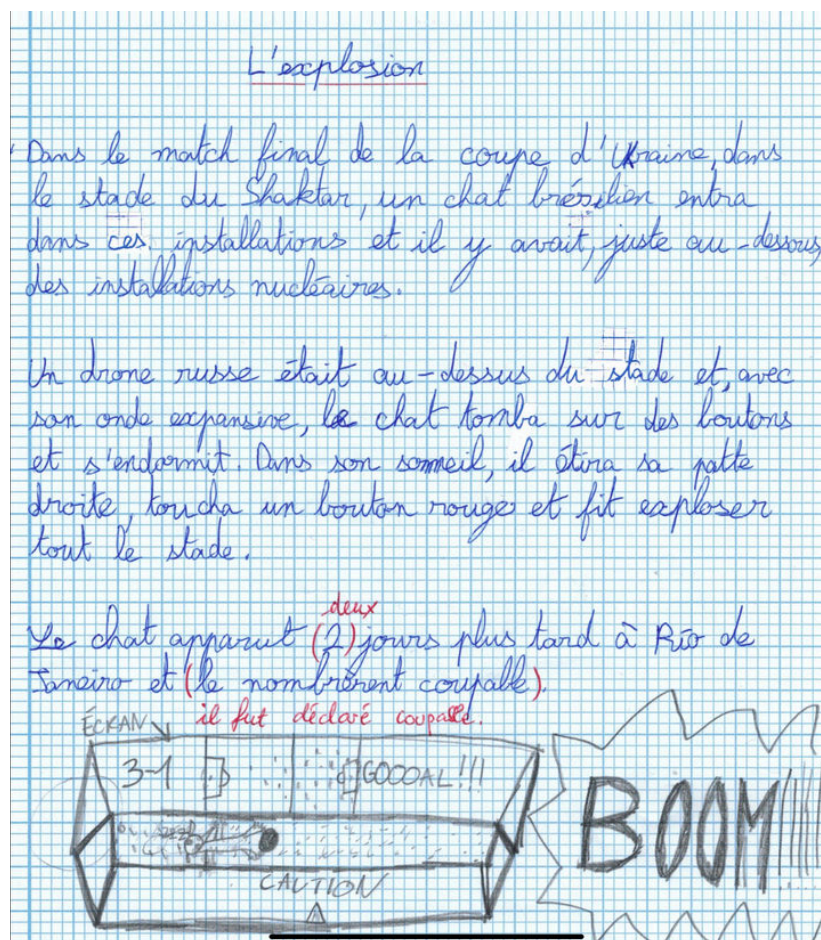 L'explosion
Dans le match final de la coupe d'Ukraine, dans
le stade du Shaktar, un chat brésilien entra
dans ces installations et il y avait, juste au-dessous,
des installations nucléaires.
Un drone russe était au-dessus du stade et, avec
son onde expansive, le chat tomba sur des boutons
et s'endormit. Dans son sommeil, il étira sa patte
droite, toucha un bouton rouge et fit exploser
tout le stade.
deux
Le chat apparut (2) jours plus tard à Rio de
Janeiro et (le nombrèrent coupable).
il fut déclaré coupable.
ÉCRAN
3-1 GOOOAL!!!
BOOM!!!!
CAUTION